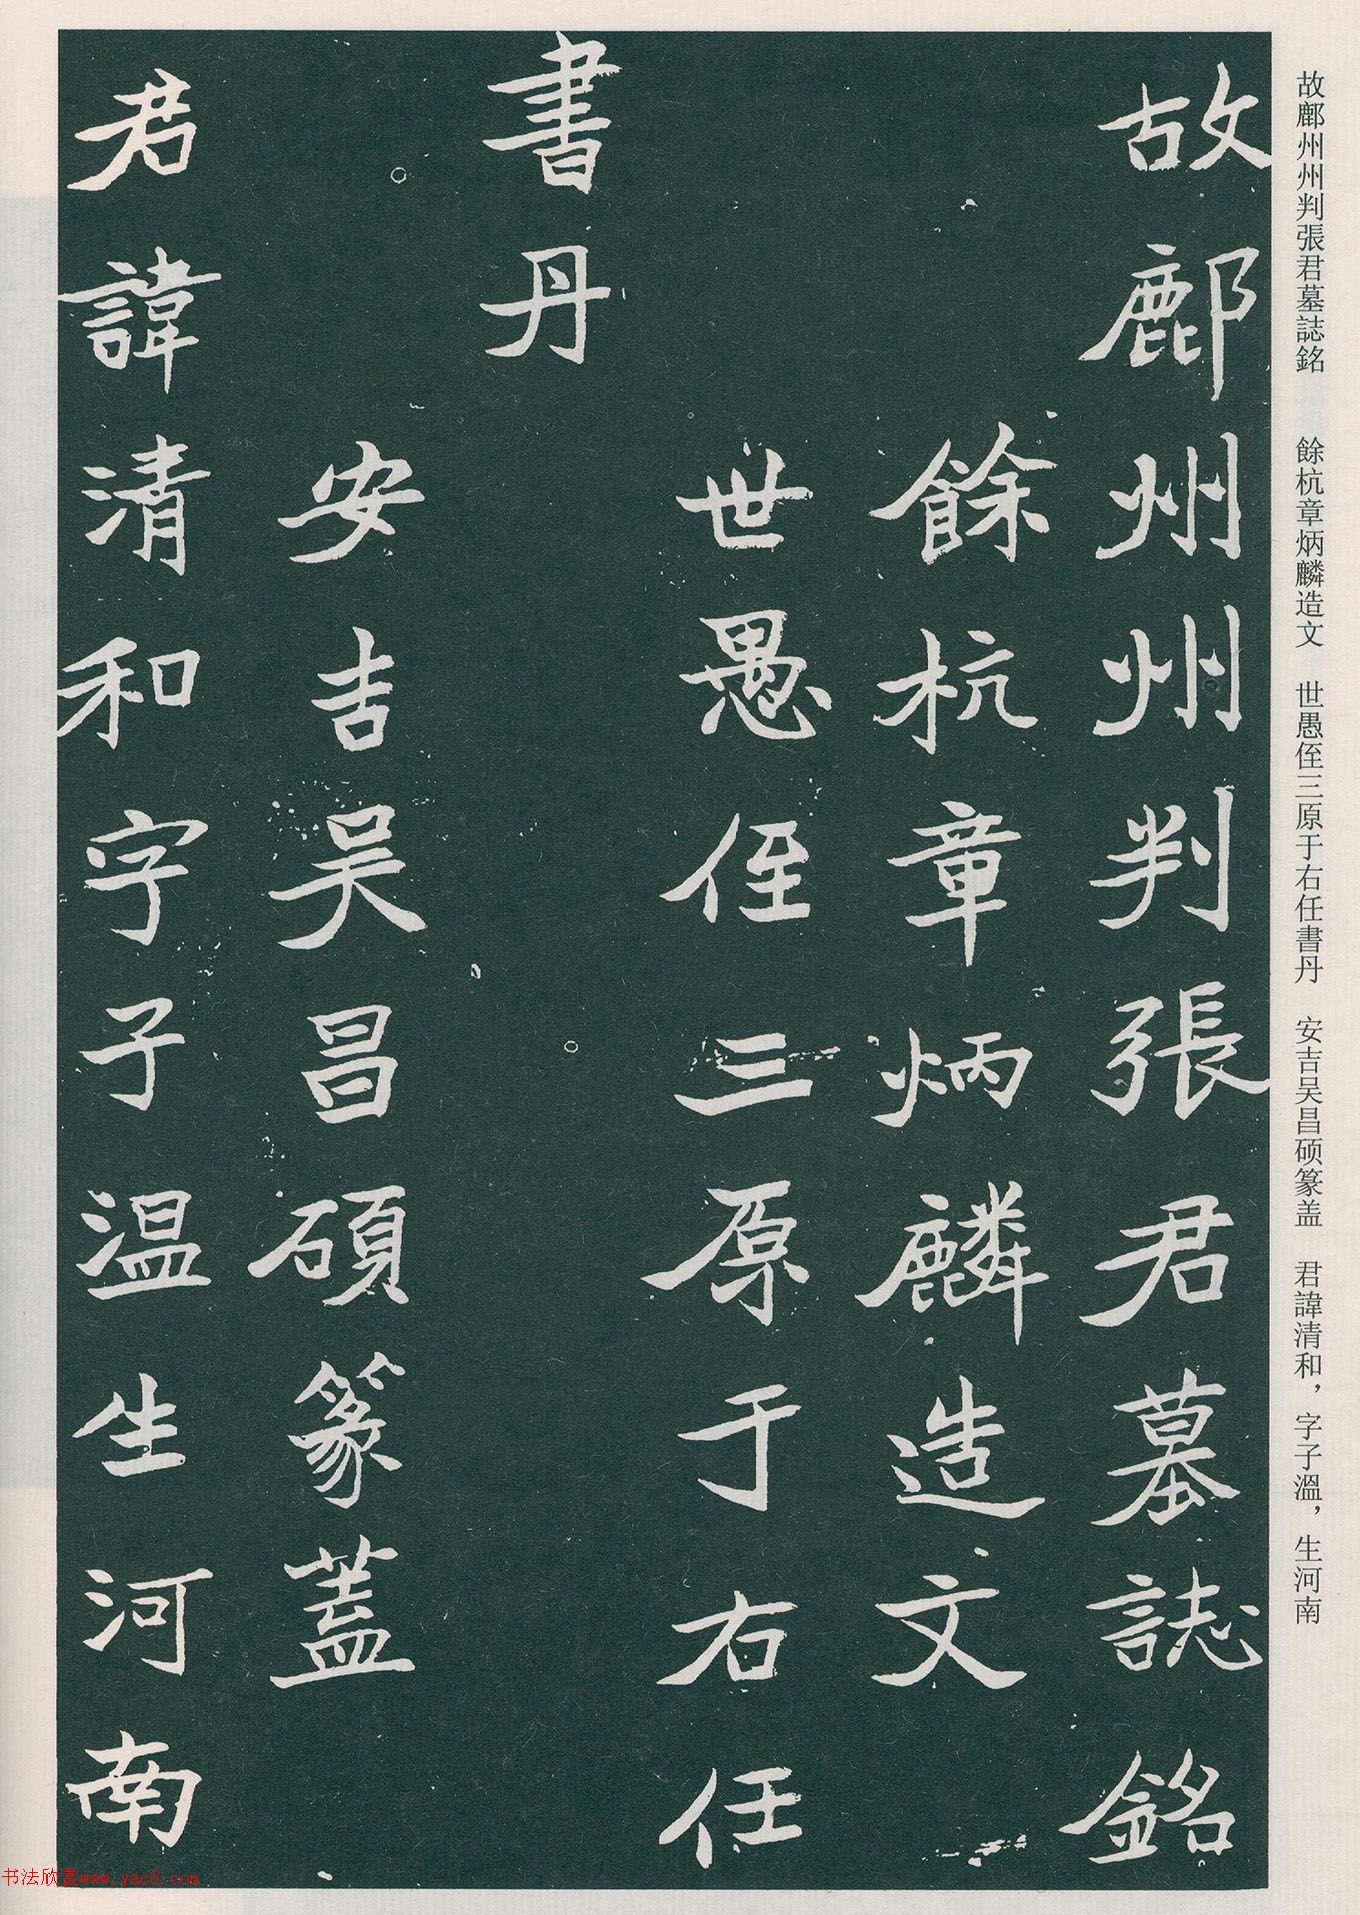 故鄜州州判張君墓誌銘　餘杭章炳麟造文　世愚侄三原于右任書丹　安吉吴昌硕篆盖　君諱清和，字子溫，生河南
故鄜州州判張君墓誌銘
餘杭章炳麟造文
世愚侄三原于右任
書丹
安吉吴昌碩篆蓋
君諱清和字子温生河南
书法欣赏www.yac8.com